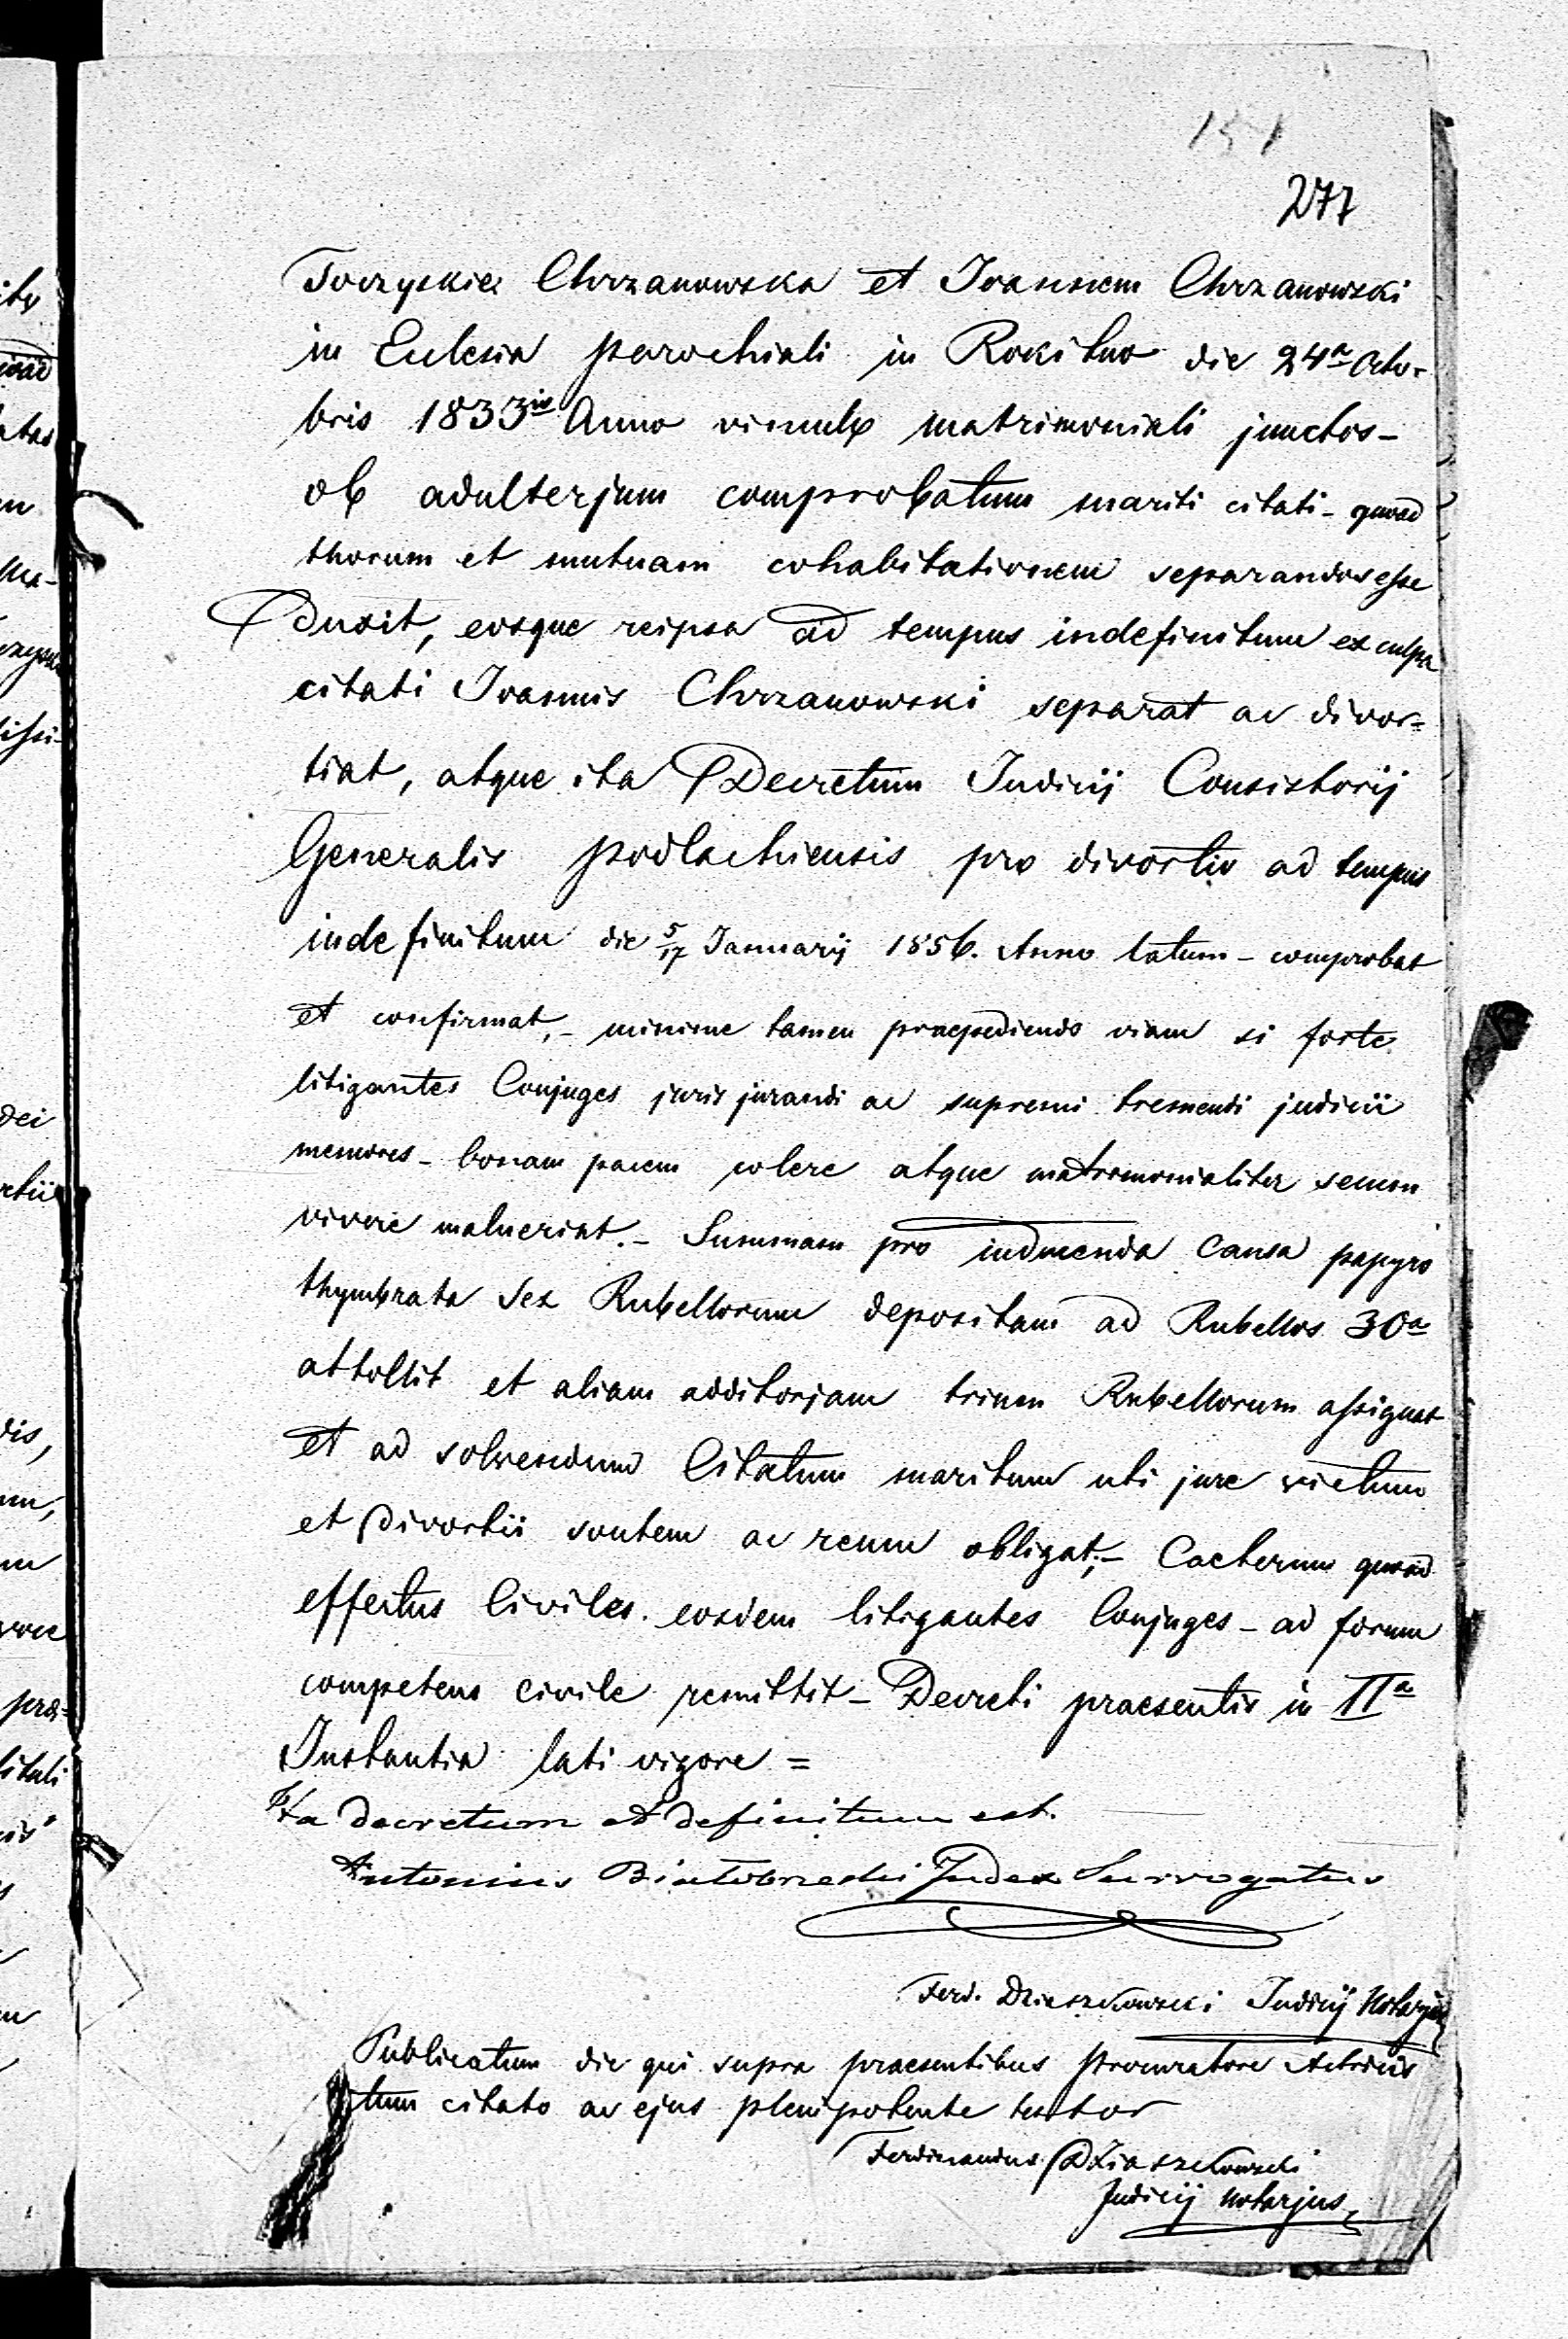 151
277
Toczyskie Chrzanowska et Joannem Chrzanowski
in Eclesia parochiali in Rokitno die 24ª Octo-
bris 1833io Anno vinculo matrimoniali junctos -
ob adulterjum comprobatum mariti citati - quoad
thorum et mutuam cohabitationem separandos esse
duxit, eosque reipsa ad tempus indefinitum ex culpa
citati Joannis Chrzanowski separat ac divor-
tiat, atque ita Decretum Judicij Consistorij
Generalis podlachiensis pro divortio ad tempus
indefinitum die 5/17 Januarij 1856. Anno latum - comprobat
et confirmat, - minime tamen praepediendo viam si forte
litigantes Conjuges juris jurandi ac supremi tremendi judicii
memores - bonam pacem colere atque matrimonialiter secum
vivere maluerint. - Summam pro inducenda causa papyro
thymbrata sex Rubellorum depositam ad Rubellos 30ª
attollit et aliam additorjam trium Rubellorum assignat
et ad solvendum Citatum maritum uti jure victum
et Divortii sontem ac reum obligat; - Caeterum quoad
effectus Civiles. eosdem litigantes Conjuges - ad forum
competens civile remittit - Decreti praesentis in IIª
Instantia lati vigore =
Ita decretum et definitum est.
Antonius Białobrzeski Judex Surrogatus
Ferd. Dziaszkowski Judicij Notarjus
Publicatum die qui supra praesentibus Procuratore Actricis
tum citato ac ejus plenipotente testor
Ferdinandus Dziaszkowski
Judicij Notarjus